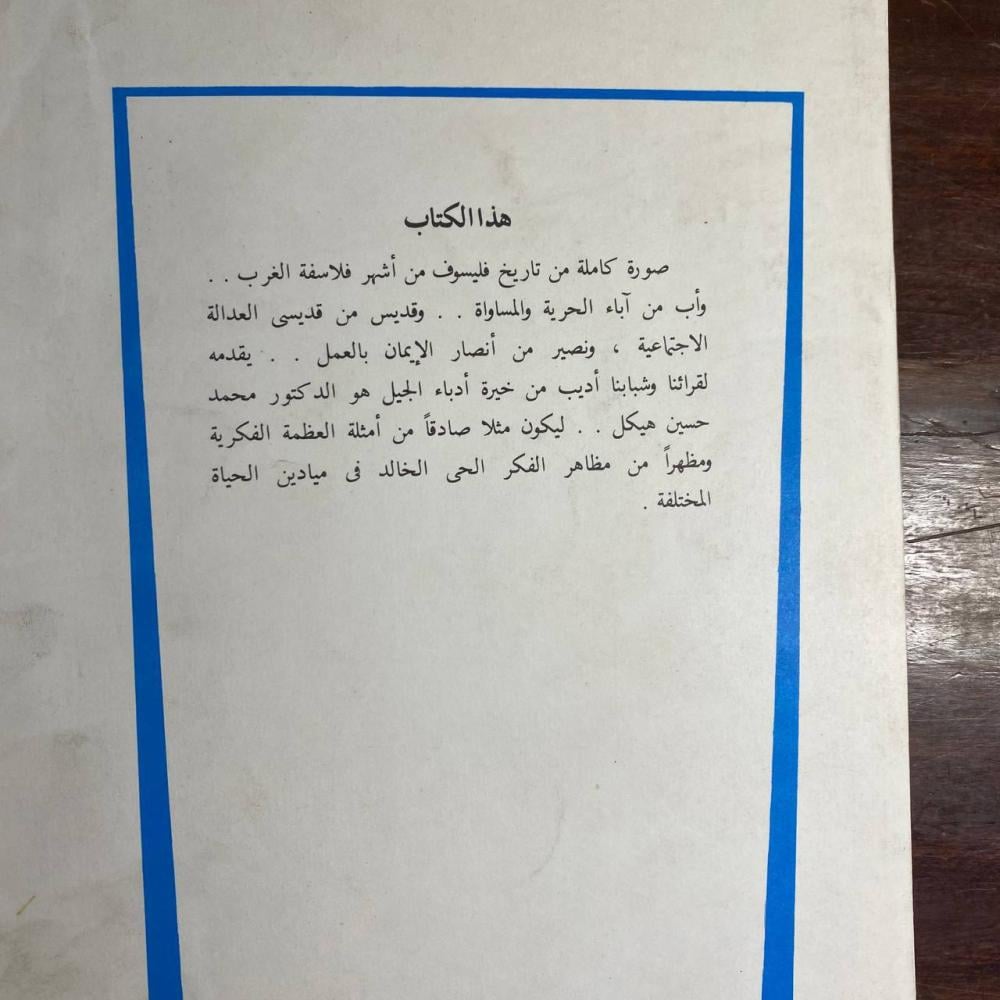 هذا الكتاب
صورة كاملة من تاريخ فليسوف من أشهر فلاسفة الغرب . .
وأب من آباء الحرية والمساواة . . وقديس من قديسى العدالة
الاجتماعية ، ونصير من أنصار الإيمان بالعمل . . يقدمه
لقرائنا وشبابنا أديب من خيرة أدباء الجيل هو الدكتور محمد
حسين هيكل . . ليكون مثلا صادقاً من أمثلة العظمة الفكرية
ومظهراً من مظاهر الفكر الحى الخالد فى ميادين الحياة
المختلفة .